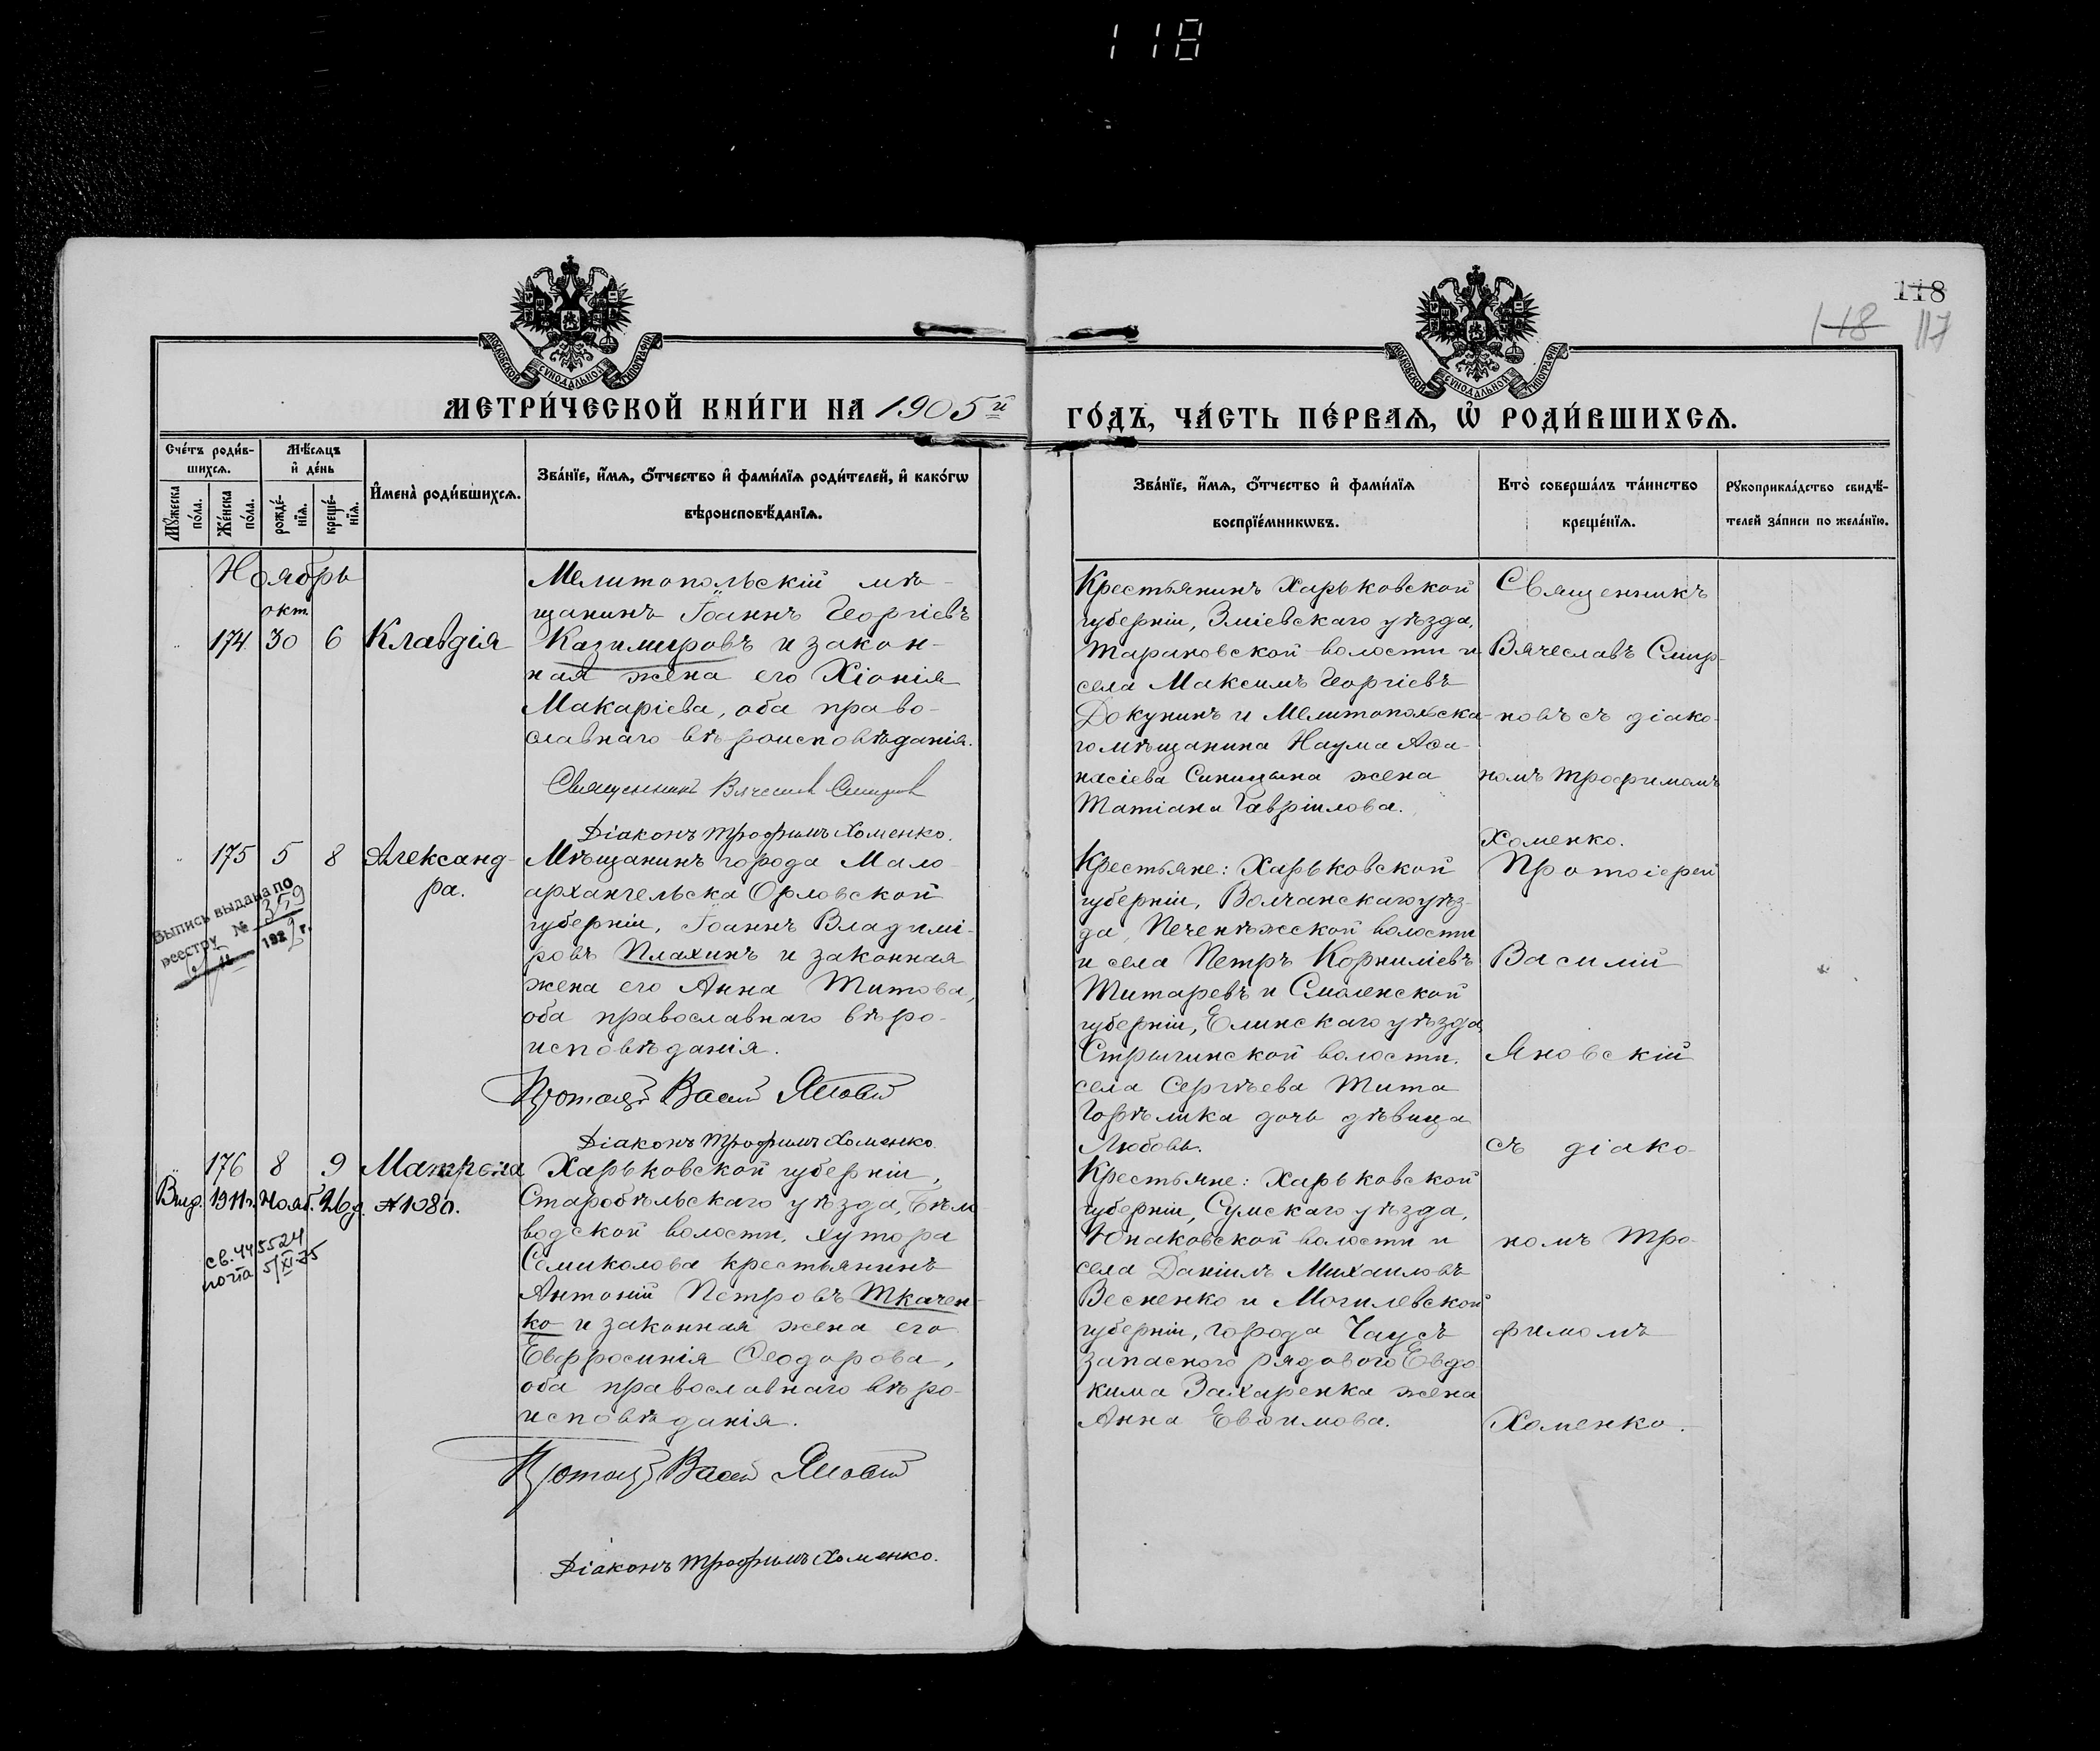 118
118
118 117
МОСКОВСКОЙ СѴНОДАЛЬНОЙ ТИПОГРАФІИ
МОСКОВСКОЙ СѴНОДАЛЬНОЙ ТИПОГРАФІИ
МЕТРИ́ЧЕСКОЙ КНИ́ГИ НА 1905й
ГО́ДЪ, ЧА́СТЬ ПЕ́РВАѦ, Ѡ҆ РОДИ́ВШИХСѦ.
Сче́тъ роди́в-
шихсѧ.
Мѣ́сѧцъ
и҆ де́нь
Мꙋ́жеска
по́ла.
Же́нска
по́ла.
рожде́-
нїѧ.
креще́-
нїѧ.
И҆мена̀ роди́вшихсѧ.
Зва́нїе, и҆́мѧ, ѻ҆́тчество и҆ фами́лїѧ роди́телей, и҆ како́гѡ
вѣроисповѣ́данїѧ.
Зва́нїе, и҆́мѧ, ѻ҆́тчество и҆ фами́лїѧ
воспрїе́мникѡвъ.
Кто̀ соверша́лъ та́инство
креще́нїѧ.
Рꙋкоприкла́дство свидѣ́-
телей за́писи по жела́нїю.
Ноябрь
окт.
174 30 6 Клавдія
Мелитопольскій мѣ-
щанинъ Іоаннъ Георгіевъ
Казимировъ и закон-
ная жена его Хіонія
Макаріева, оба право-
славнаго вѣроисповѣданія.
Священникъ Вячеслав Смирнов
Діаконъ Трофимъ Хоменко.
Крестьянинъ Харьковской
губерніи, Зміевскаго уѣзда,
Тарановской волости и
села Максимъ Георгіевъ
Докунинъ и Мелитопольска-
го мѣщанина Наума Аѳа-
насіева Синицына жена
Татіана Гавріилова.
Священникъ
Вячеславъ Смир-
новъ съ діако-
номъ Трофимомъ
Хоменко.
175 5 8 Александ-
ра.
Выпись выдана по
реестру № 359
1929 г.
Мѣщанинъ города Мало-
архангельска Орловской
губерніи, Іоаннъ Владимі-
ровъ Плахинъ и законная
жена его Анна Титова,
оба православнаго вѣро-
исповѣданія.
Протоіер. Васил Яновскій
Діаконъ Трофимъ Хоменко
Крестьяне: Харьковской
губерніи, Волчанскаго уѣз-
да, Печенѣжской волости
и села Петръ Корниліевъ
Титаревъ и Смоленской
губерніи, Елинскаго уѣзда,
Стрыгинской волости,
села Сергѣева Тита
Горѣлика дочь дѣвица
Любовь.
Протоіерей
Василій
Яновскій
съ діако-
номъ Тро-
фимомъ
Хоменко.
176 8 9 Матрона
Выд. 1911 г. Нояб. 26 д. № 1080.
св. 445524
почта 5/XI-75
Харьковской губерніи,
Старобѣльскаго уѣзда, Бѣло-
водской волости, хутора
Семиколова крестьянинъ
Антоній Петровъ Ткачен-
ко и законная жена его
Евфросинія Ѳеодорова,
оба православнаго вѣро-
исповѣданія.
Протоіер. Васил Яновскій
Діаконъ Трофимъ Хоменко.
Крестьяне: Харьковской
губерніи, Сумскаго уѣзда,
Юнаковской волости и
села Даніилъ Михаиловъ
Весненко и Могилевской
губерніи, города Чаусъ
запаснаго рядового Евдо-
кима Захаренка жена
Анна Евѳимова.